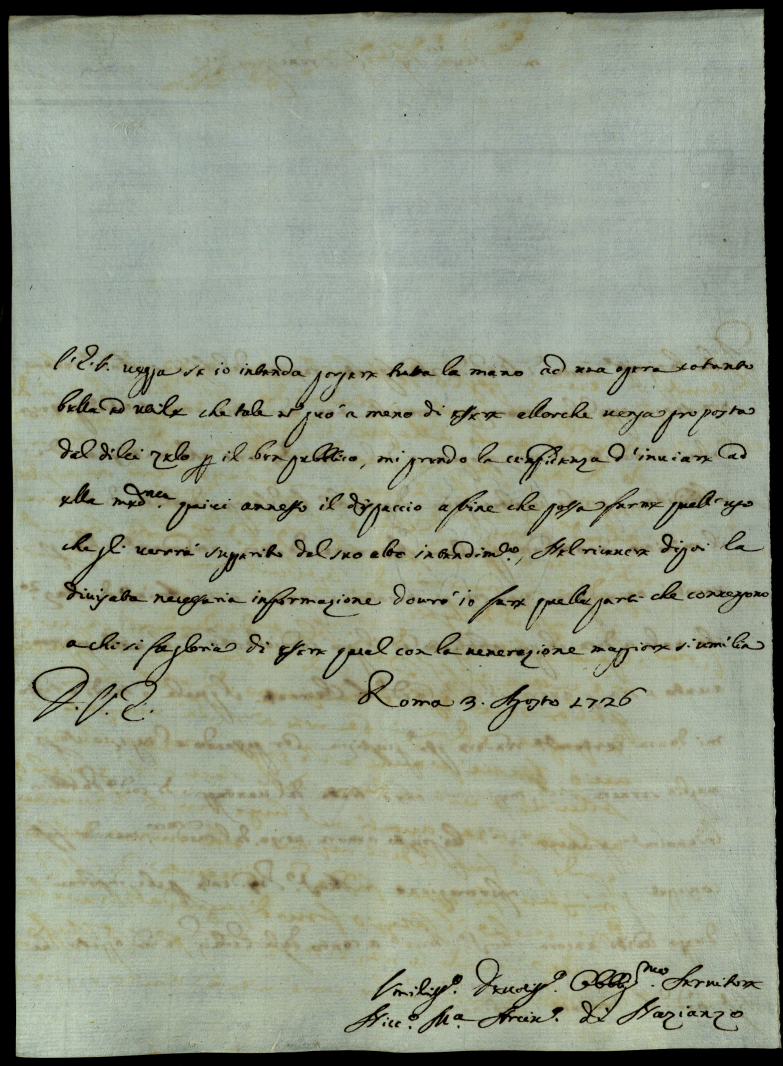 V. E. V. vegga se io intenda porgere tutta la mano ad una opera cotanto
bella ed utile che tale nō può a meno di essere allorche venga proposta
dal di lei zelo p il ben pubblico, mi prendo la confidenza d'inviare ad
ella medma. quivi annesso il dispaccio afine che possa farne quell'uso
che gli verrà suggerito dal suo alto intendimto, Nel ricevere di poi la
divisata necessaria informazione dovrò io fare quelle parti che convengono
a chi si fa gloria di essere qual con la venerazione maggiore si umilia
D. V. E. Roma 3. Agosto 1726
Umiliss.o Devotis.o Obblg.mo Servitore
Nicc.o Ma. Arciv.o di Nazianzo